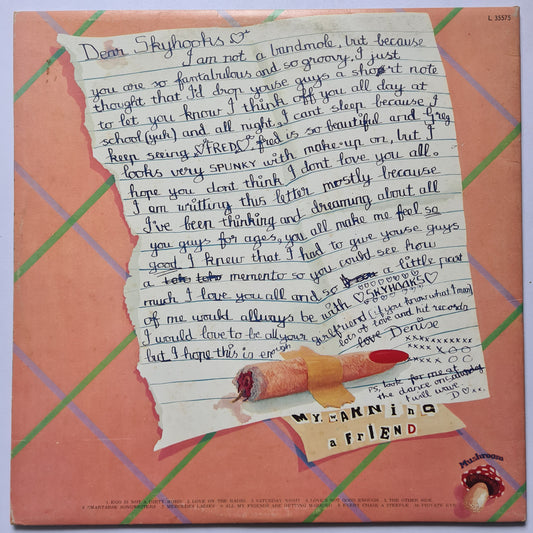 L 35575
Dear Skyhooks
I am not a bandmole, but because
you are so fantabulous and so groovy, I just
thought that I'd drop youse guys a short note
to let you know I think off you all day at
school (yuk) and all night. I cant sleep because I
keep seeing FRED. fred is so beautiful and Greg
looks very SPUNKY with make-up on, but I
hope you dont think I dont love you all.
I am writting this letter mostly because
I've been thinking and dreaming about all
you guys for ages, you all make me feel so
good I knew that I had to give youse guys
a memento so you could see how
much I love you all and so a little part
of me would allways be with SKYHOOKS
I would love to be all your girlfriend (if you know what I mean)
but I hope this is enough lots of love and hit records
love Denise
xxxxxxxxxx
xxxxx
PS, look for me at
the dance on saturday
I will wave
D xx.
MY WARNING
a FRIEND
Mushroom
1. EGO IS NOT A DIRTY WORD 2. LOVE ON THE RADIO 3. SATURDAY NIGHT 4. LOVE'S NOT GOOD ENOUGH 5. THE OTHER SIDE
6. SMARTARSE SONGWRITERS 7. MERCEDES LADIES 8. ALL MY FRIENDS ARE GETTING MARRIED 9. EVERY CHASE A STEEPLE 10. PRIVATE EYE